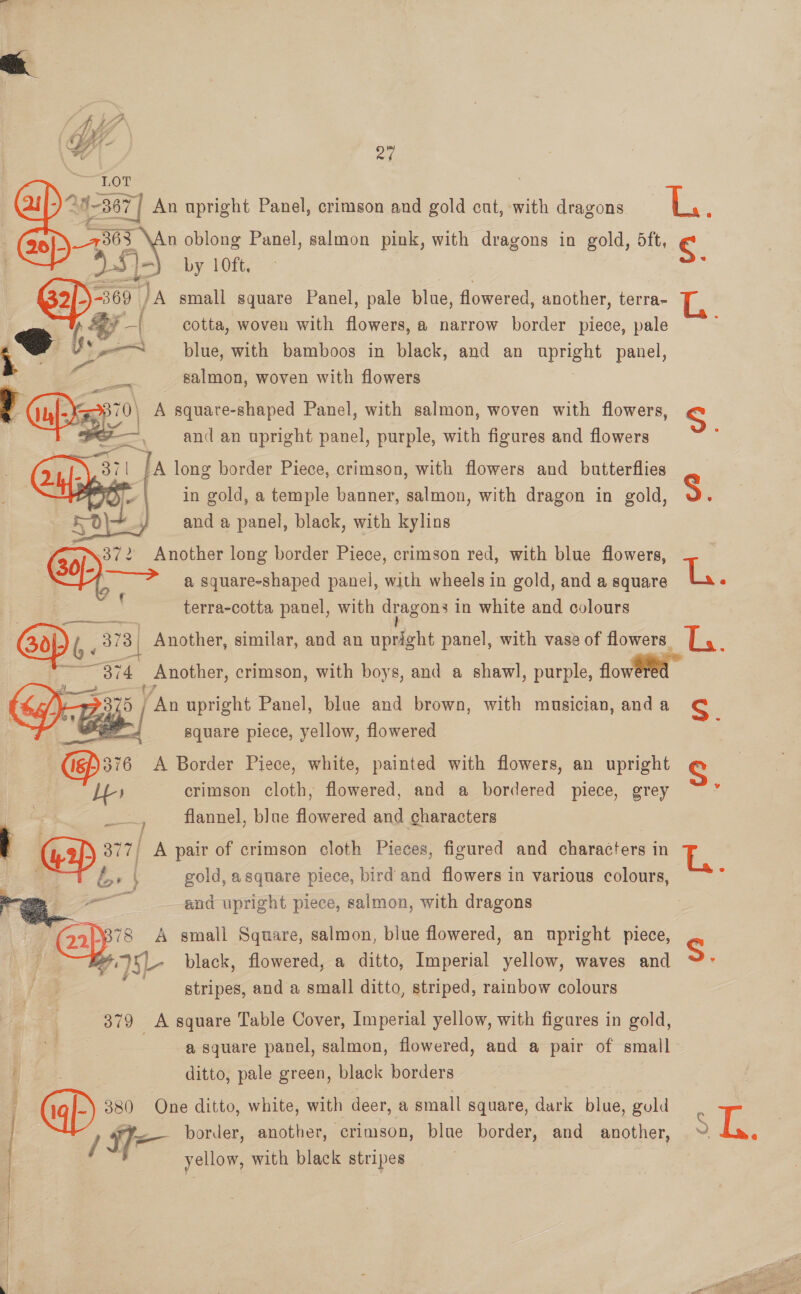 27
LOT
21/- 367 An upright Panel, crimson and gold cut, with dragons L.
20/- 368 An oblong Panel, salmon pink, with dragons in gold, 5ft, S.
by 10ft.
32/- 369 A small square Panel, pale blue, flowered, another, terra- L.
cotta, woven with flowers, a narrow border piece, pale
blue, with bamboos in black, and an upright panel,
salmon, woven with flowers
370 A square-shaped Panel, with salmon, woven with flowers, S.
and an upright panel, purple, with figures and flowers
24/- 371 A long border Piece, crimson, with flowers and butterflies
in gold, a temple banner, salmon, with dragon in gold, S.
and a panel, black, with kylins
30/- 372 Another long border Piece, crimson red, with blue flowers,
a square-shaped panel, with wheels in gold, and a square L.
terra-cotta panel, with dragons in white and colours
30/- 373 Another, similar, and an upright panel, with vase of flowers L.
374 Another, crimson, with boys, and a shawl, purple, flowered
375 An upright Panel, blue and brown, with musician, and a S.
square piece, yellow, flowered
18/- 376 A Border Piece, white, painted with flowers, an upright S.
crimson cloth, flowered, and a bordered piece, grey
flannel, blue flowered and characters
42/- 377 A pair of crimson cloth Pieces, figured and characters in L.
gold, a square piece, bird and flowers in various colours,
and upright piece, salmon, with dragons
22/- 378 A small Square, salmon, blue flowered, an upright piece,
black, flowered, a ditto, Imperial yellow, waves and S.
stripes, and a small ditto, striped, rainbow colours
379 A square Table Cover, Imperial yellow, with figures in gold,
a square panel, salmon, flowered, and a pair of small
ditto, pale green, black borders
19/- 380 One ditto, white, with deer, a small square, dark blue, gold
border, another, crimson, blue border, and another, S L.
yellow, with black stripes